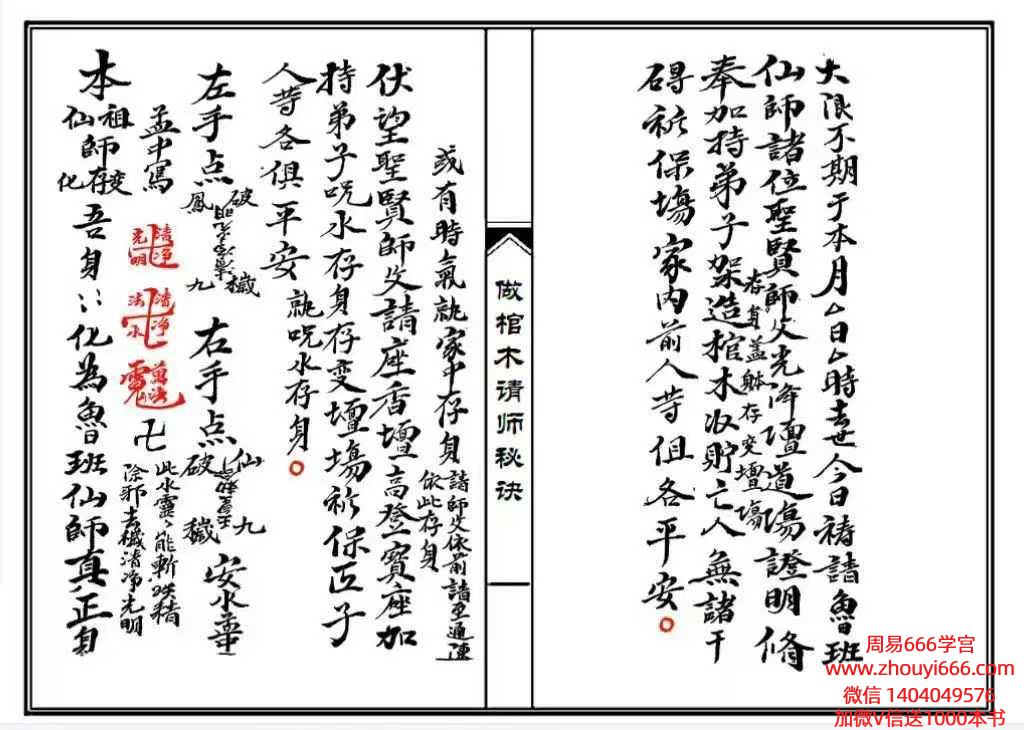 大限不期于本月厶日厶時去世今日禱請魯班
仙師諸位聖賢師父光降壇道場證明修
奉加持弟子架造棺木収貯亡人無諸干
存身蓋躰存变壇場
碍祈保場家内前人等俱各平安
做棺木请师秘诀
或有時氣就家中存身
請師父依前請至通陳
依此存身
伏望聖賢師父請座香壇高登寶座加
持弟子呪水存身存变壇場祈保匠子
人等各俱平安
就呪水存身
左手点
破
鳳
穢
九
右手点
仙
破
穢
九
安水華
盂中寫
清净
光明
清净
法水
萬法
卍
此水靈ミ能斬妖精
除邪去穢清净光明
本
祖
仙師存变
化
吾身ミ化為魯班仙師真正身
周易666学宫
www.zhouyi666.com
微信 1404049576
加微V信送1000本书